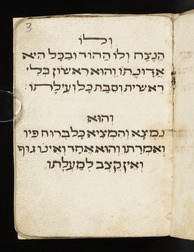 3
ולו
הנצח ולו ההוד ובכל היא
אדנותו והוא ראשון בלי
ראשית וסבת כל ועילתו:
והוא
נמצא והמציא כל ברוח פיו
ואמרתו והוא אחד ואינו גוף
ואין קצב למעלתו